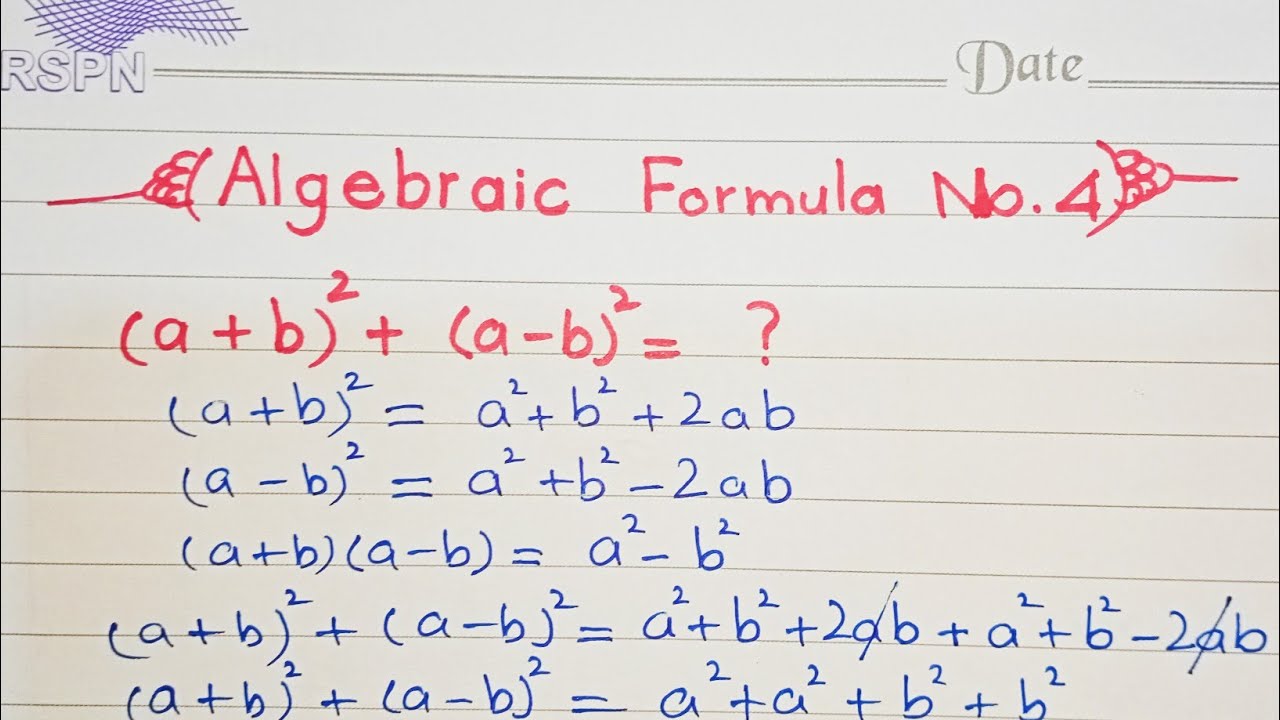 RSPN
Date
Algebraic Formula No. 4
(a + b)² + (a - b)² = ?
(a + b)² = a² + b² + 2ab
(a - b)² = a² + b² - 2ab
(a + b)(a - b) = a² - b²
(a + b)² + (a - b)² = a² + b² + 2ab + a² + b² - 2ab
(a + b)² + (a - b)² = a² + a² + b² + b²